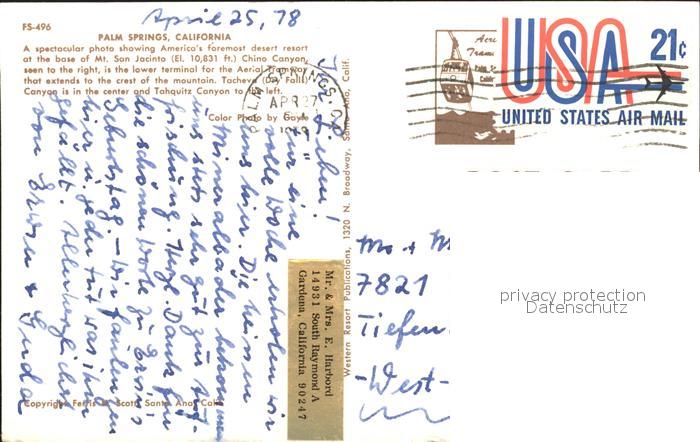 April 25, 78
FS-496
PALM SPRINGS, CALIFORNIA
A spectacular photo showing America's foremost desert resort
at the base of Mt. San Jacinto (El. 10,831 ft.) Chino Canyon,
seen to the right, is the lower terminal for the Aerial Tramway
that extends to the crest of the mountain. Tachevah (Dry Falls)
Canyon is in the center and Tahquitz Canyon to the left.
Color Photo by Gayle
PALM SPRINGS, CA
APR 27
Tram
USA 21c
UNITED STATES AIR MAIL
Ihr Lieben!
Für eine
volle Woche erholen wir
uns hier. Die heissen
Mineralbäder bekommen
uns sehr gut zur
frischung. Dank für
die schönen Worte zu Erwin's
Geburtstag. - Wir faulenzen
hier u. jeder tut was ihm
gefällt. Allerherzlichst
von Erwin & Gerda
Western Resort Publications, 1320 N. Broadway, Santa Ana, Calif.
Mr. & Mrs. E. Harbord
14931 South Raymond A
Gardena, California 90247
7821
Tiefen
-West-
privacy protection
Datenschutz
Copyright Ferris H. Scott, Santa Ana, Calif.